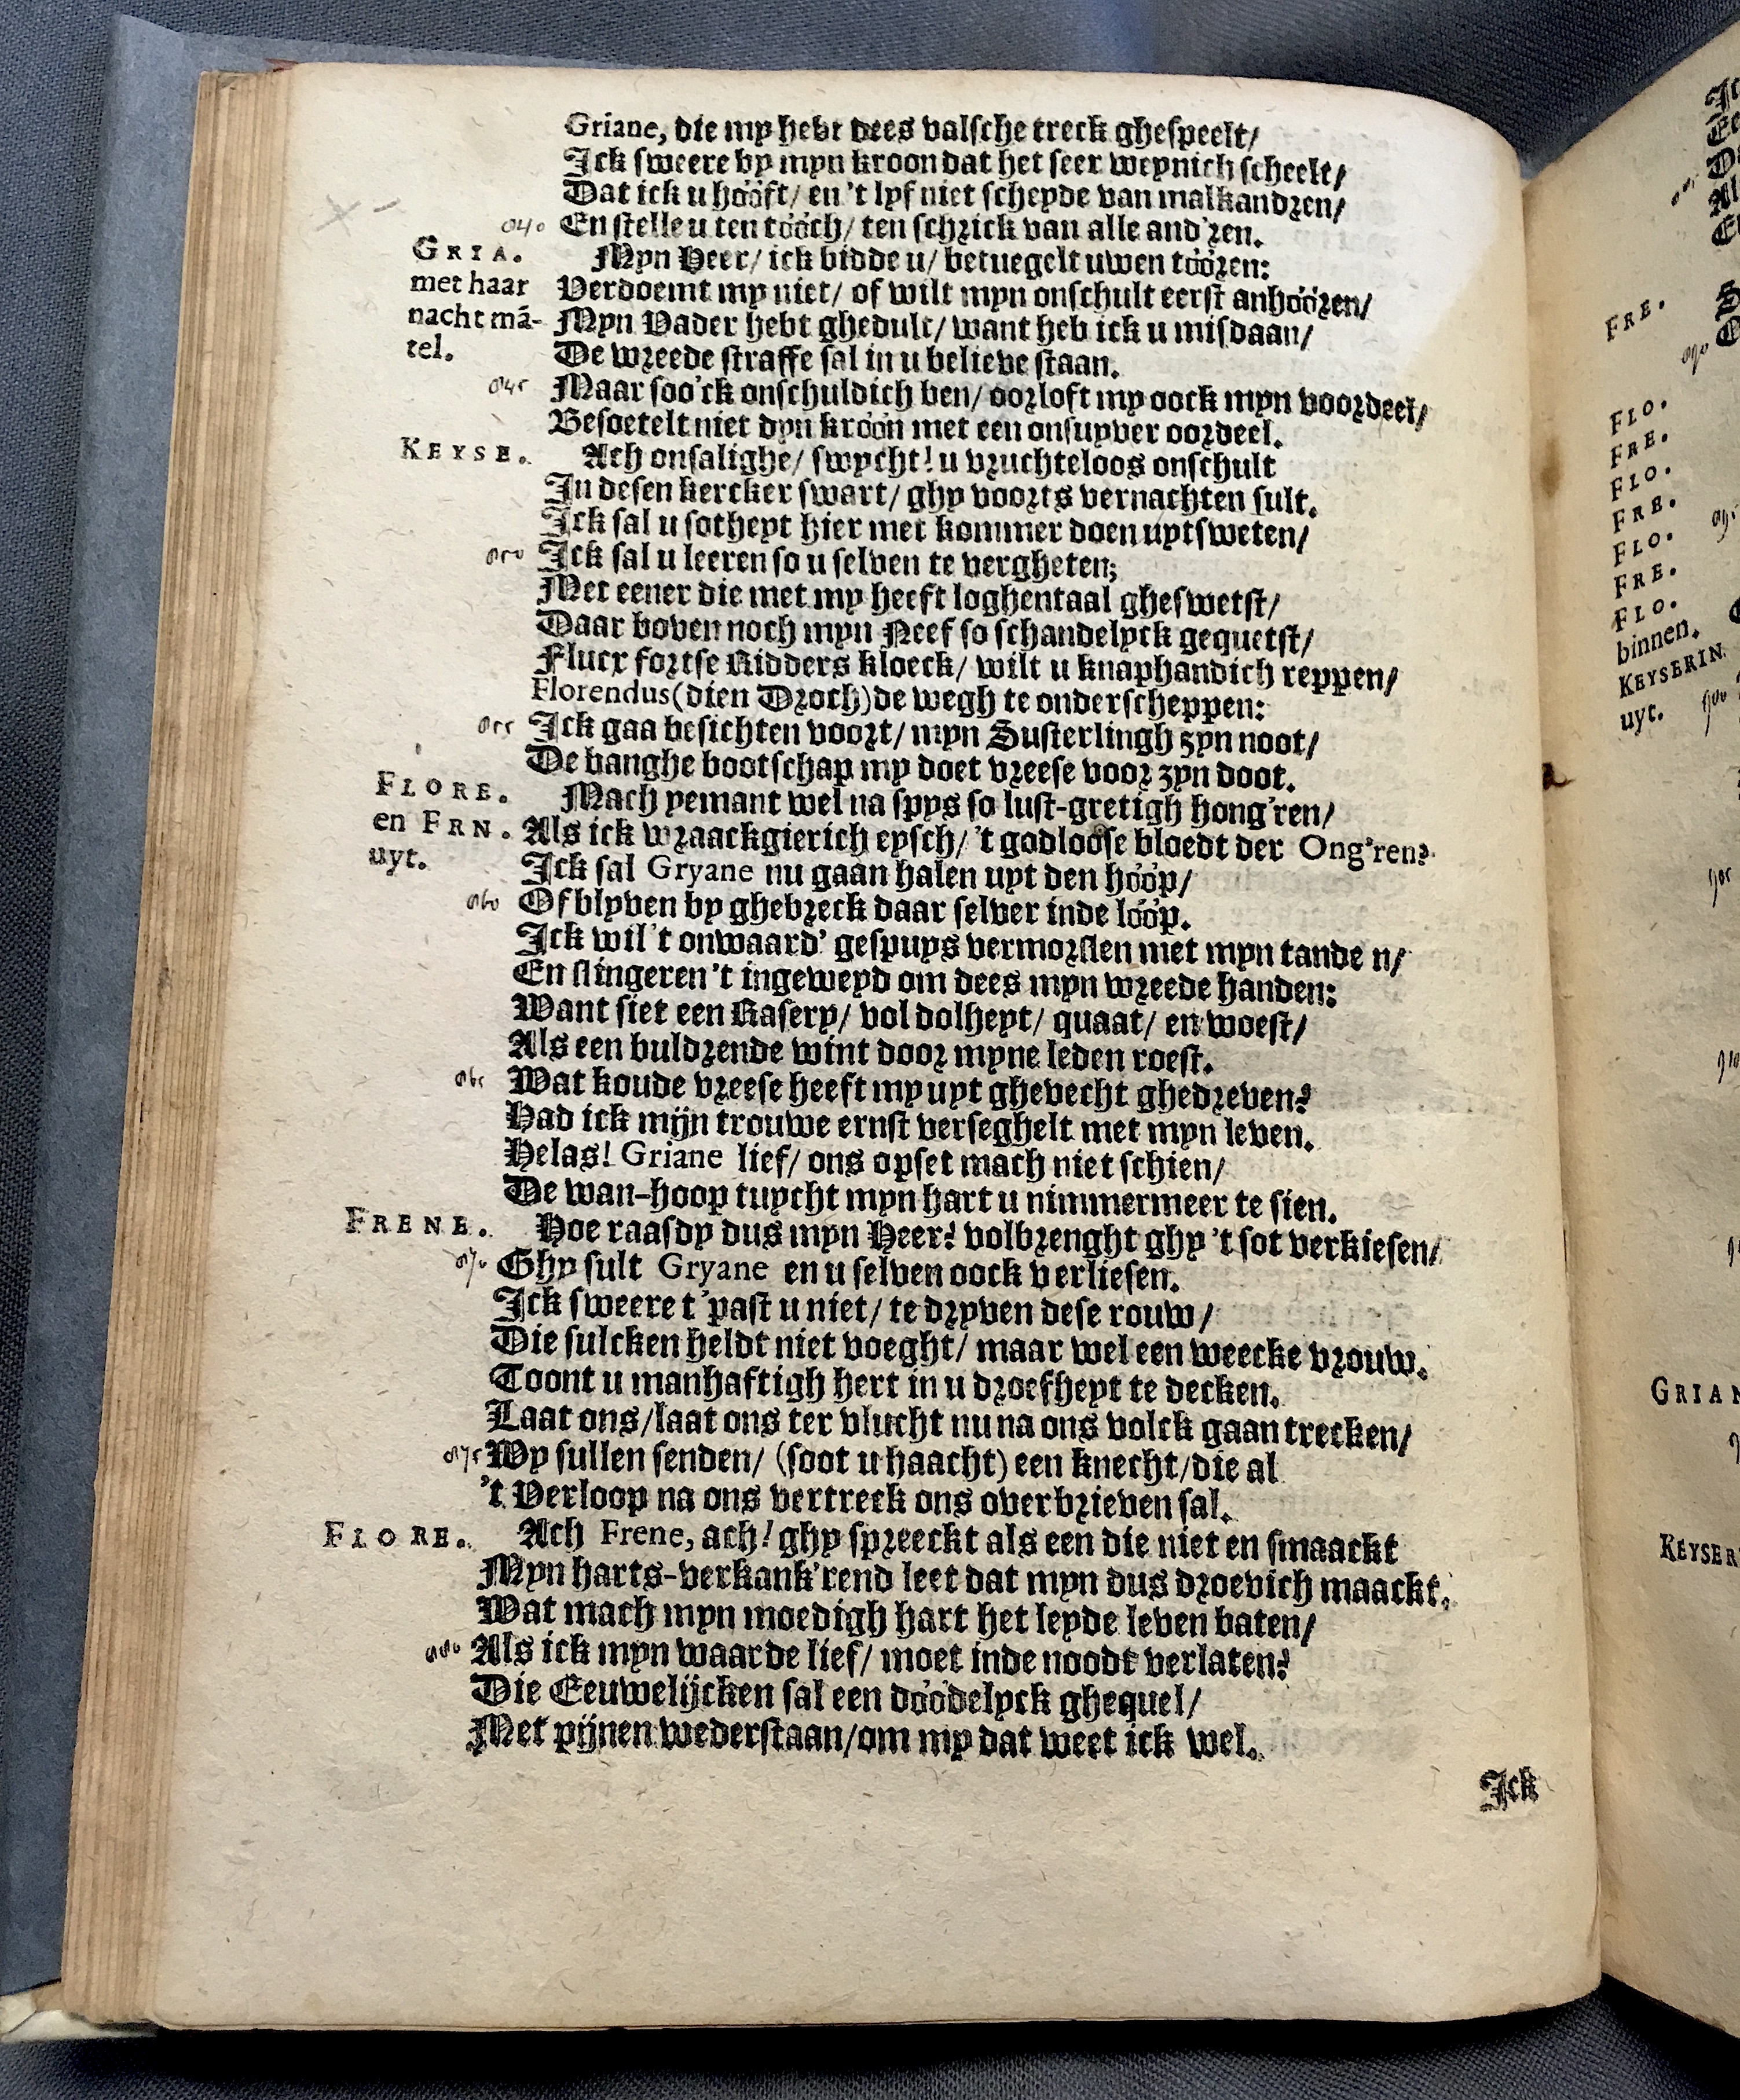 Griane, die my hebt dees valsche treck ghespeelt/
Ick sweere by myn kroon dat het seer weynich scheelt/
Dat ick u hóóft/ en 't lyf niet scheyde van malkandren/
040 En stelle u ten tóóch/ ten schrick van alle and'ren.
GRIA. Myn Heer/ ick bidde u/ betuegelt uwen tóóren:
met haar Verdoemt my niet/ of wilt myn onschult eerst anhóóren/
nacht mã- Myn Vader hebt ghedult/ want heb ick u misdaan/
tel. De wreede straffe sal in u believe staan.
045 Maar soo'ck onschuldich ben/ oorloft my oock myn voordeel/
Besoetelt niet dyn króón met een onsuyver oordeel.
KEYSE. Ach onsalighe/ swycht! u vruchteloos onschult
In desen kercker swart/ ghy voorts vernachten sult.
Ick sal u sotheyt hier met kommer doen uytsweten/
050 Ick sal u leeren so u selven te vergheten;
Met eener die met my heeft loghentaal gheswetst/
Daar boven noch myn Neef so schandelyck gequetst/
Flucx fortse Ridders kloeck/ wilt u knaphandich reppen/
Florendus (dien Droch) de wegh te onderscheppen:
055 Ick gaa besichten voort/ myn Susterlingh zyn noot/
De banghe bootschap my doet vreese voor zyn doot.
FLORE. Mach yemant wel na spys so lust-gretigh hong'ren/
en FRN. Als ick wraackgierich eysch/ 't godloose bloedt der Ong'ren?
uyt. Ick sal Gryane nu gaan halen uyt den hóóp/
060 Of blyven by ghebreck daar selver inde lóóp.
Ick wil't onwaard' gespuys vermorslen met myn tande n/
En slingeren 't ingeweyd om dees myn wreede handen:
Want siet een Rasery/ vol dolheyt/ quaat/ en woest/
Als een buldrende wint door myne leden roest.
065 Wat koude vreese heeft my uyt ghevecht ghedreven?
Had ick mijn trouwe ernst verseghelt met myn leven.
Helas! Griane lief/ ons opset mach niet schien/
De wan-hoop tuycht myn hart u nimmermeer te sien.
FRENE. Hoe raasdy dus myn Heer? volbrenght ghy 't sot verkiesen/
070 Ghy sult Gryane en u selven oock verliesen.
Ick sweere t'past u niet/ te dryven dese rouw/
Die sulcken heldt niet voeght/ maar wel een weecke vrouw.
Toont u manhaftigh hert in u droefheyt te decken.
Laat ons/laat ons ter vlucht nu na ons volck gaan trecken/
075 Wy sullen senden/ (soot u haacht) een knecht/die al
't Verloop na ons vertreck ons overbrieven sal.
FLORE. Ach Frene, ach! ghy spreeckt als een die niet en smaackt
Myn harts-verkank'rend leet dat myn dus droevich maackt.
Wat mach myn moedigh hart het leyde leven baten/
080 Als ick myn waarde lief/ moet inde noodt verlaten?
Die Eeuwelijcken sal een dóódelyck ghequel/
Met pijnen wederstaan/om my dat weet ick wel.
Ick
FRE.
090
FLO.
FRE.
FLO.
FRE.
FLO.
FRE.
FLO.
binnen.
KEYSERIN.
uyt.
GRIAN
KEYSER